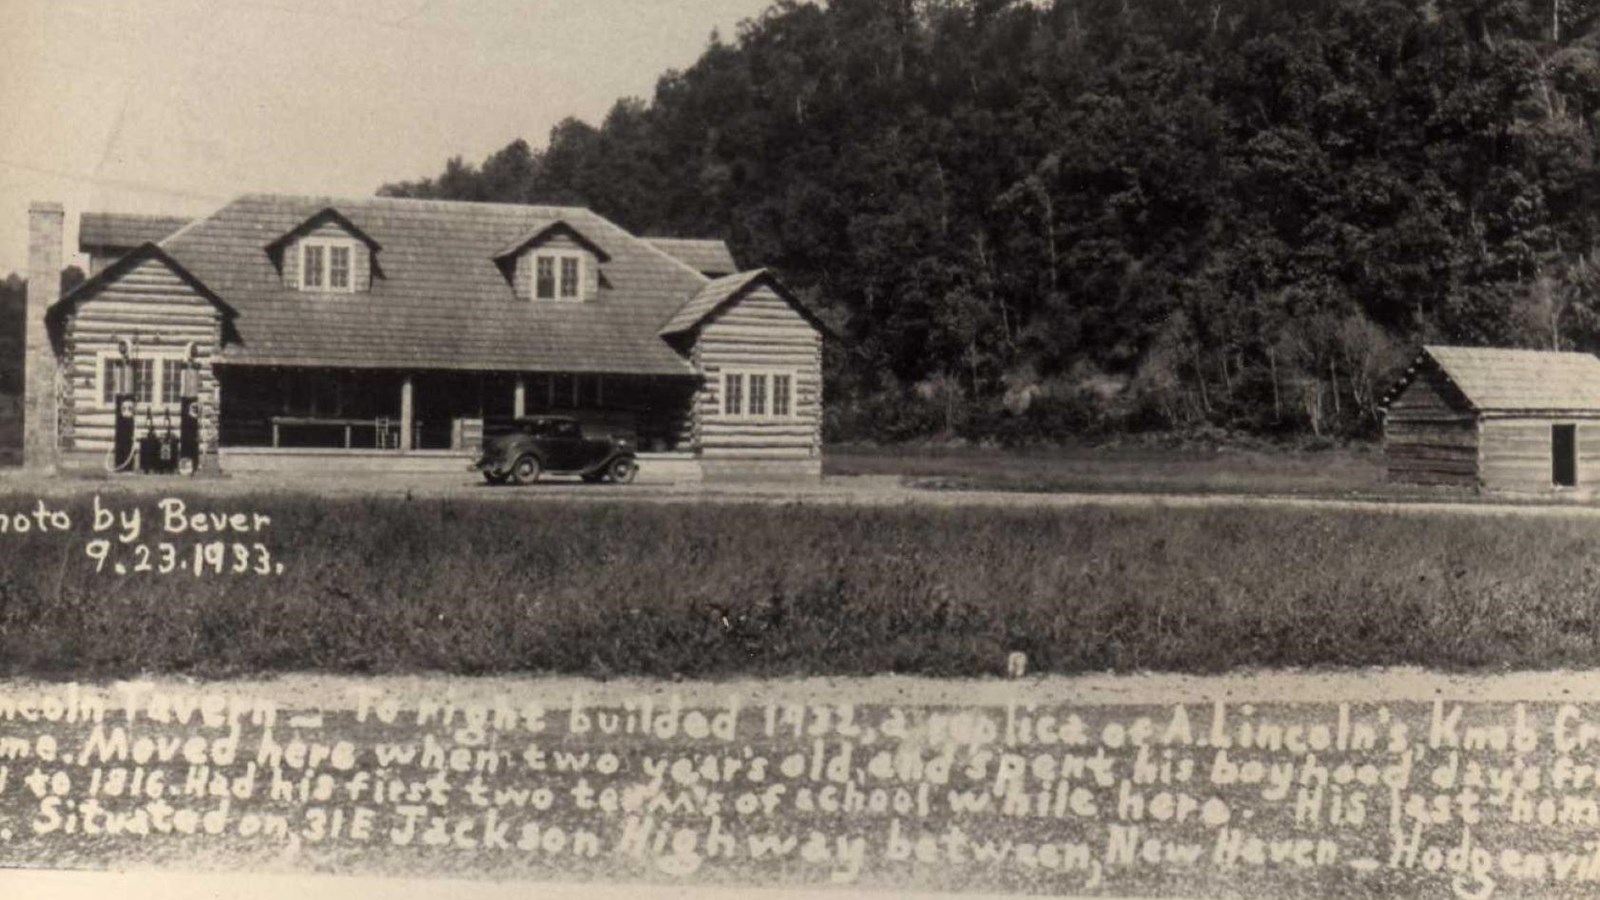 hoto by Bever
9.23.1933.
ncoln Tavern - To right builded 1932, a replica of A. Lincoln's, Knob Cr
me. Moved here when two year's old, and spent his boyhood day's fr
1 to 1816. Had his first two term's of school while here. His last hom
. Situated on, 31E Jackson Highway between, New Haven - Hodgenvill